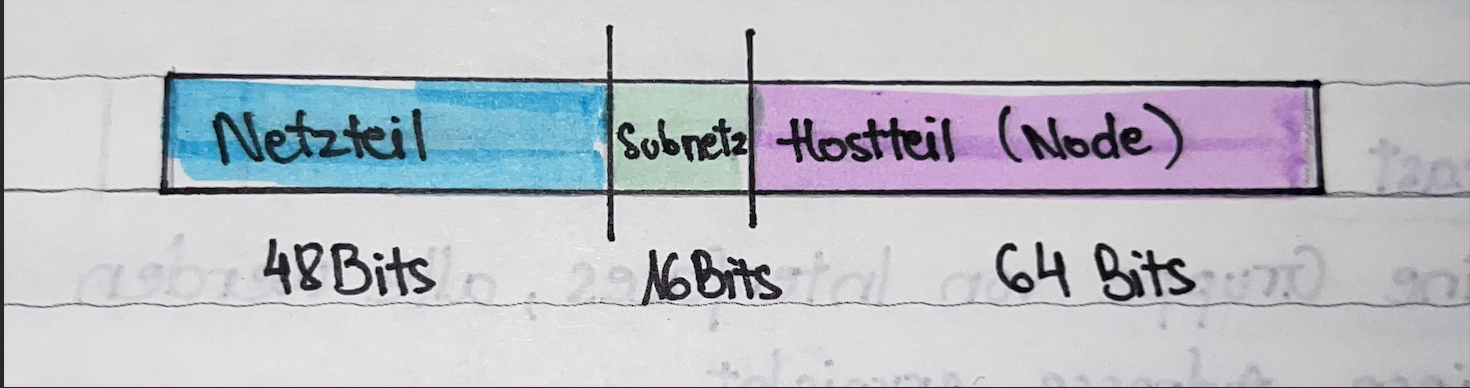 Netzteil Subnetz Hostteil (Node)
48 Bits 16 Bits 64 Bits